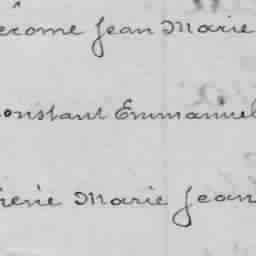 érome Jean Marie
onstant Emmanuel
Marie Jean